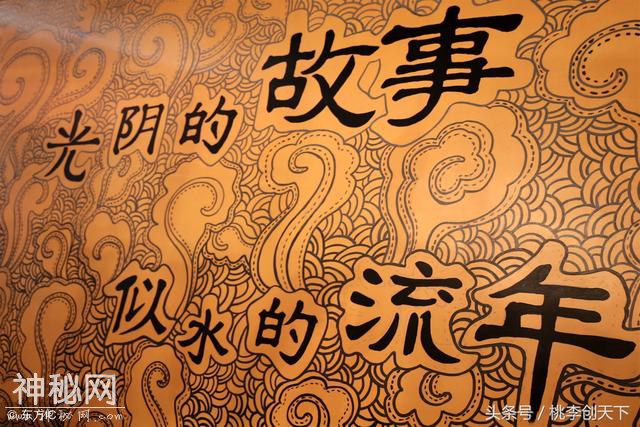 光阴的故事
似水的流年
神秘网
头条号 / 桃李创天下